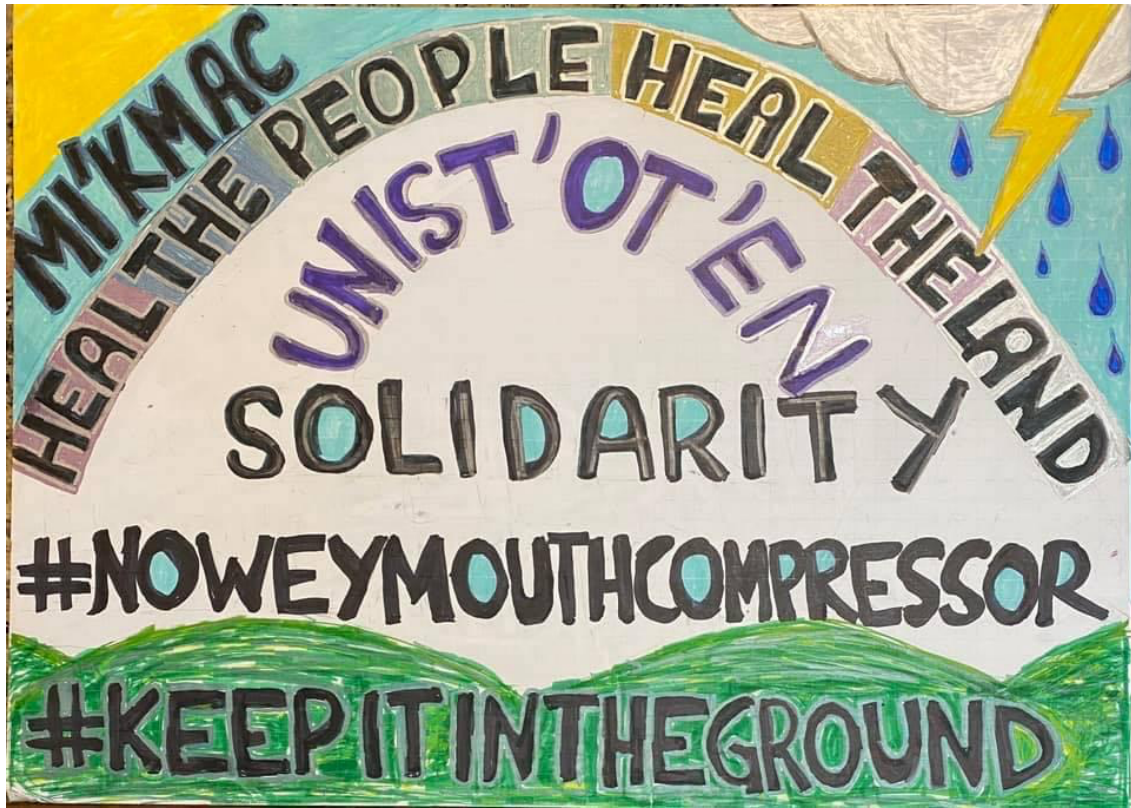 MI'KMAC
HEAL THE PEOPLE HEAL THE LAND
UNIST'OT'EN
SOLIDARITY
#NOWEYMOUTHCOMPRESSOR
#KEEPITINTHEGROUND